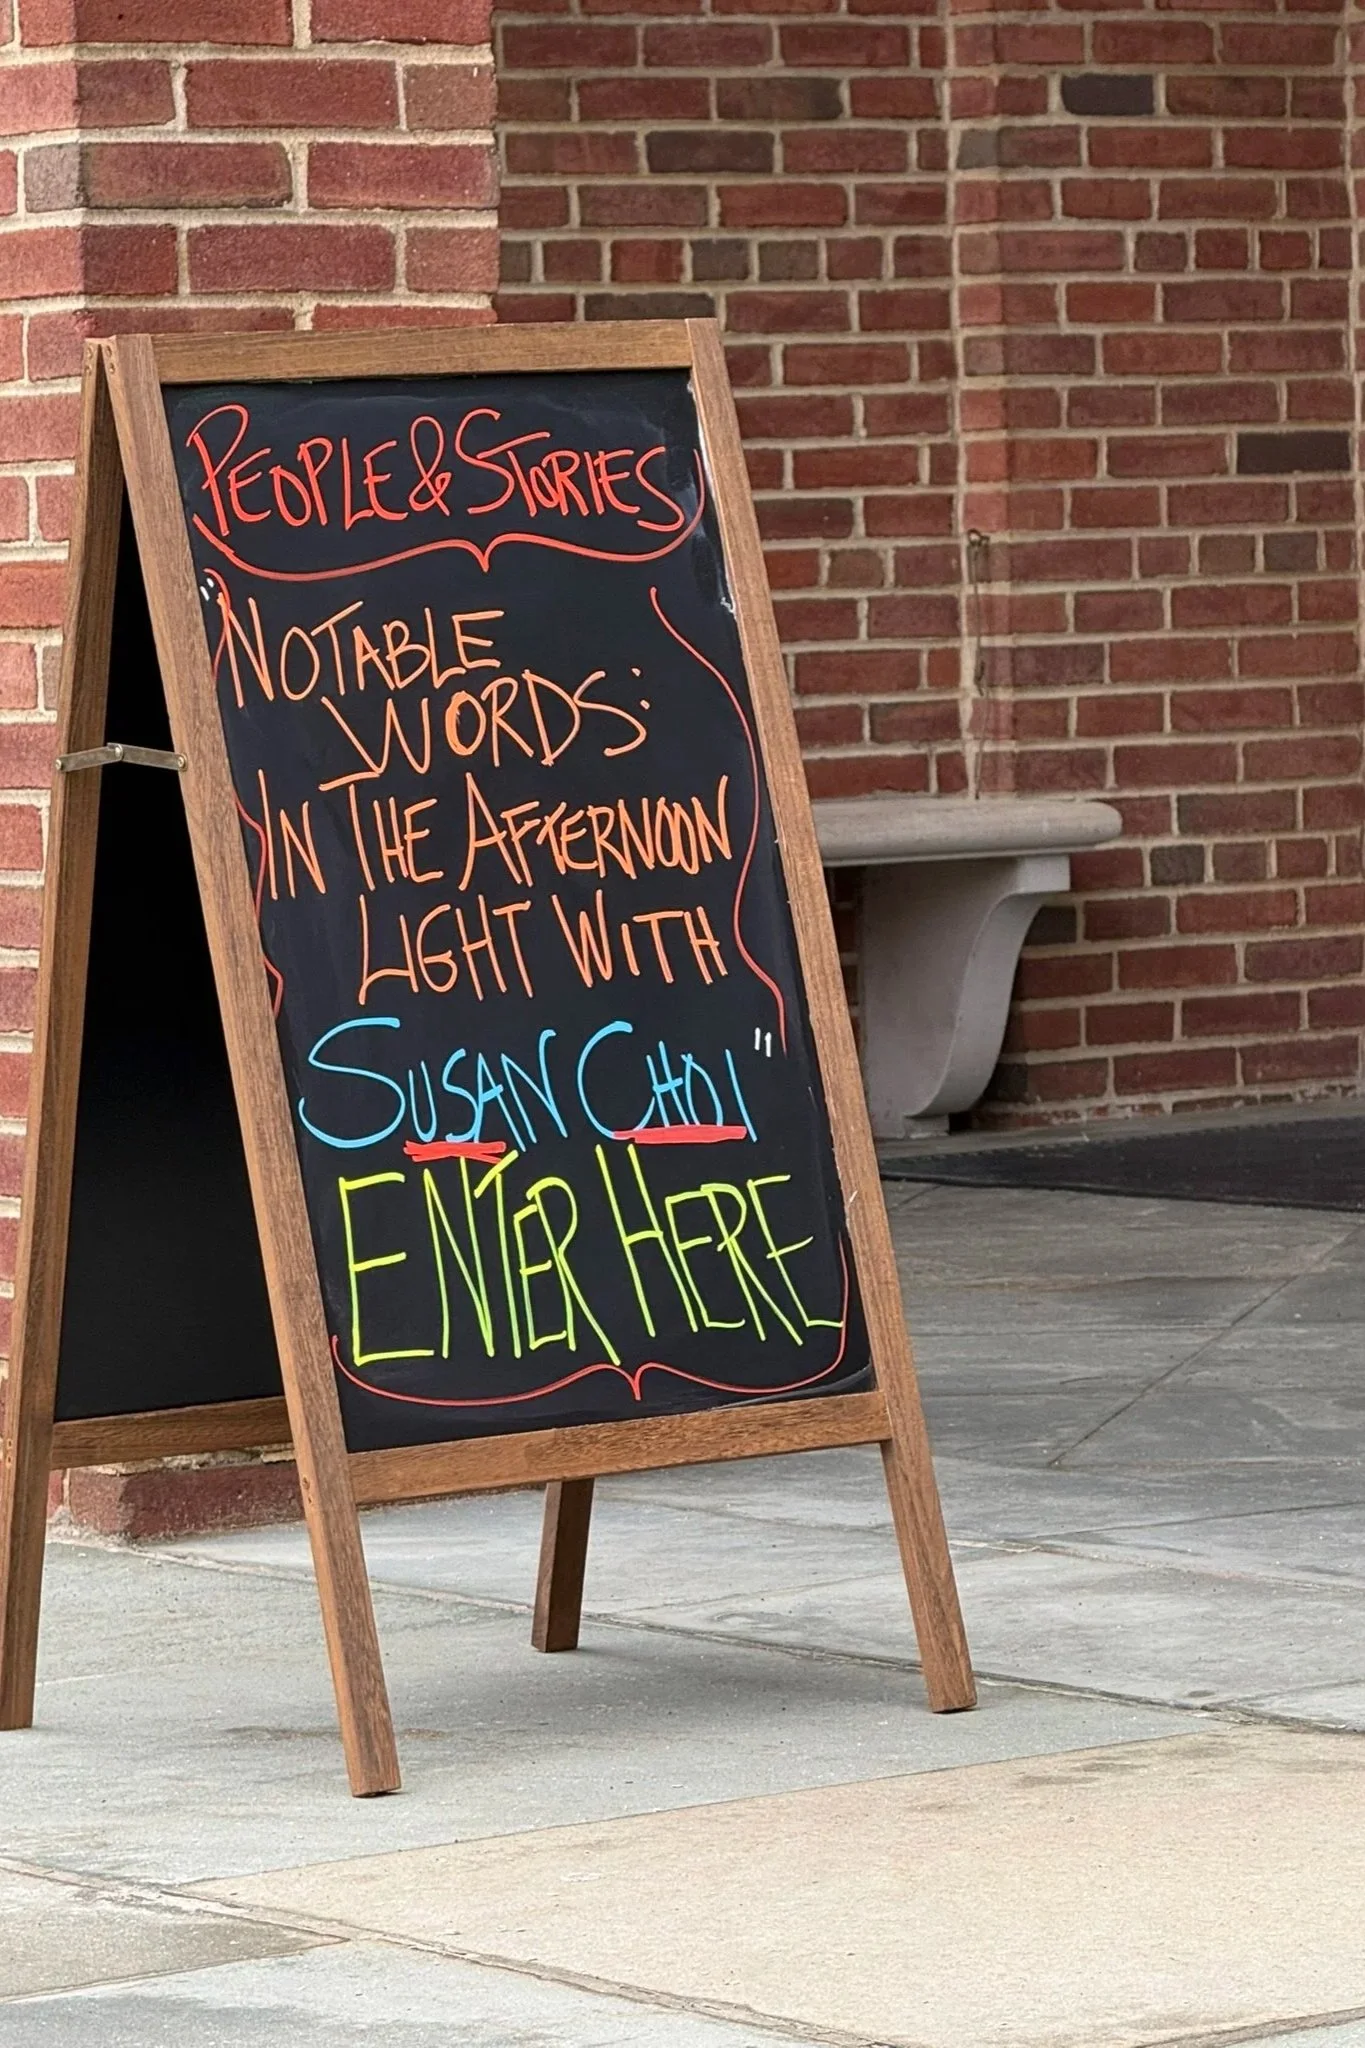 PEOPLE & STORIES
"NOTABLE
WORDS:
IN THE AFTERNOON
LIGHT WITH
SUSAN CHOI"
ENTER HERE